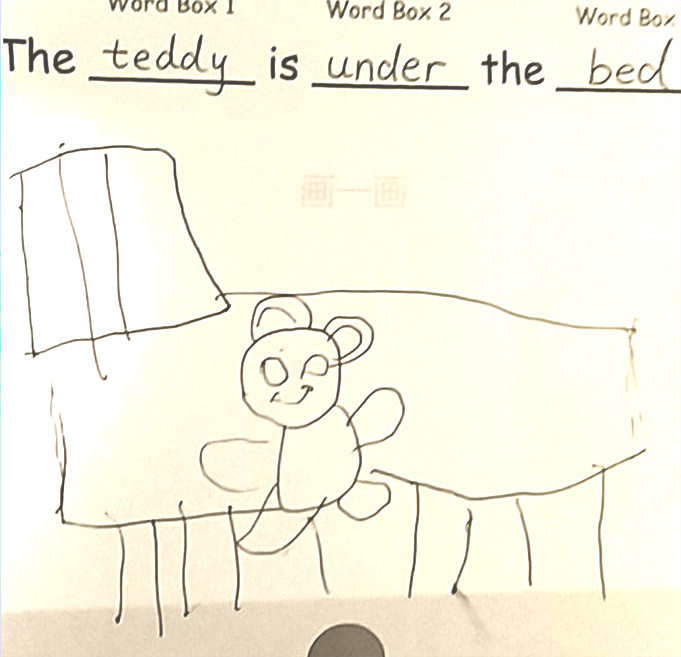 Word Box 1 Word Box 2 Word Box
The teddy is under the bed
画一画